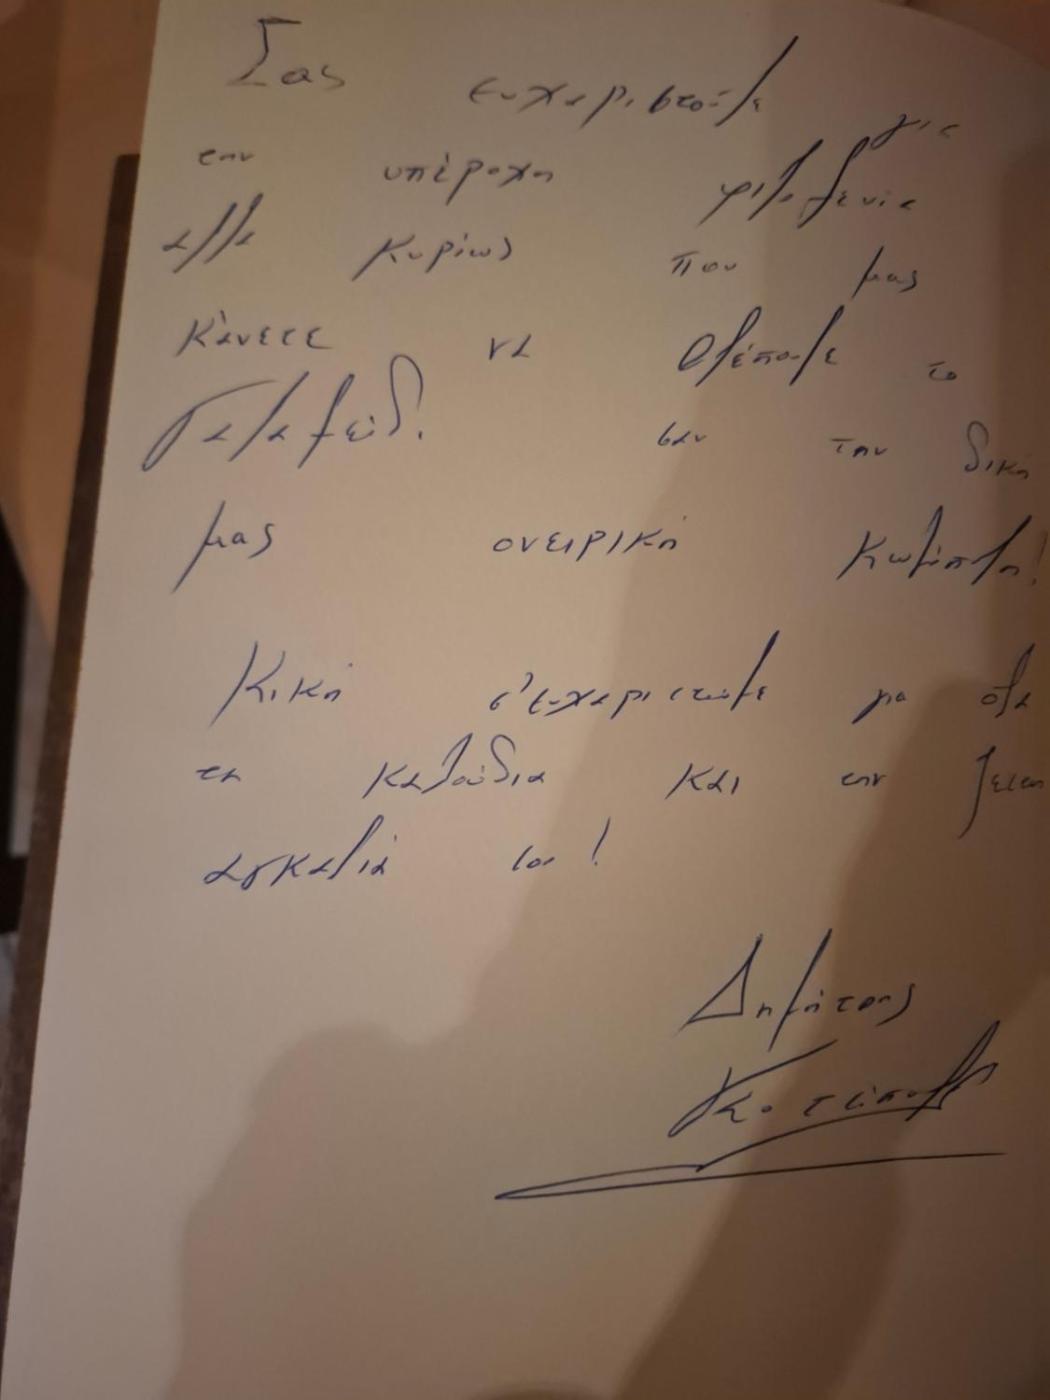 Σας ευχαριστούμε για
την υπέροχη φιλοξενία
αλλά κυρίως που μας
κάνετε να βλέπουμε το
Γαλαξείδ. σαν την δική
μας ονειρική κωμόπολη!
Κική σ'ευχαριστούμε για όλα
τα καλούδια και την ζεστη
αγκαλιά σου!
Δημήτρης